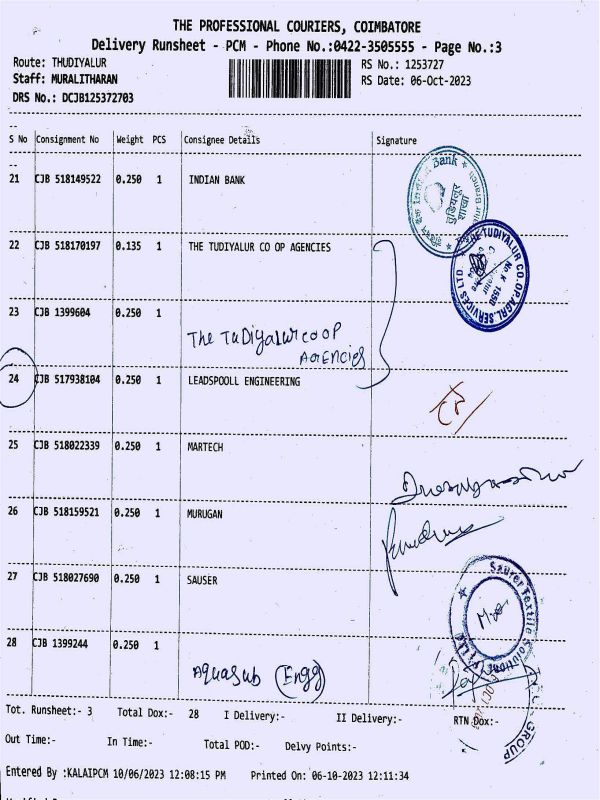 THE PROFESSIONAL COURIERS, COIMBATORE
Delivery Runsheet - PCM - Phone No.:0422-3505555 - Page No.:3
Route: THUDIYALUR
RS No.: 1253727
Staff: MURALITHARAN
RS Date: 06-Oct-2023
DRS No.: DCJB125372703
S No Consignment No Weight PCS Consignee Details Signature
21 CJB 518149522 0.250 1 INDIAN BANK
22 CJB 518170197 0.135 1 THE TUDIYALUR CO OP AGENCIES
23 CJB 1399604 0.250 1
The Tudiyalur coop
Agencies
24 CJB 517938104 0.250 1 LEADSPOOLL ENGINEERING
25 CJB 518022339 0.250 1 MARTECH
26 CJB 518159521 0.250 1 MURUGAN
27 CJB 518027690 0.250 1 SAUSER
28 CJB 1399244 0.250 1
Aquasub (Engg)
Bank
तुडियलूर
शाखा
THE TUDIYALUR CO.OP.AGRL.SERVICES LTD.
No K 1550
Saurer Textile Solutions
GROUP
Tot. Runsheet:- 3 Total Dox:- 28 I Delivery:- II Delivery:- RTN Dox:-
Out Time:- In Time:- Total POD:- Delvy Points:-
Entered By :KALAIPCM 10/06/2023 12:08:15 PM Printed On: 06-10-2023 12:11:34